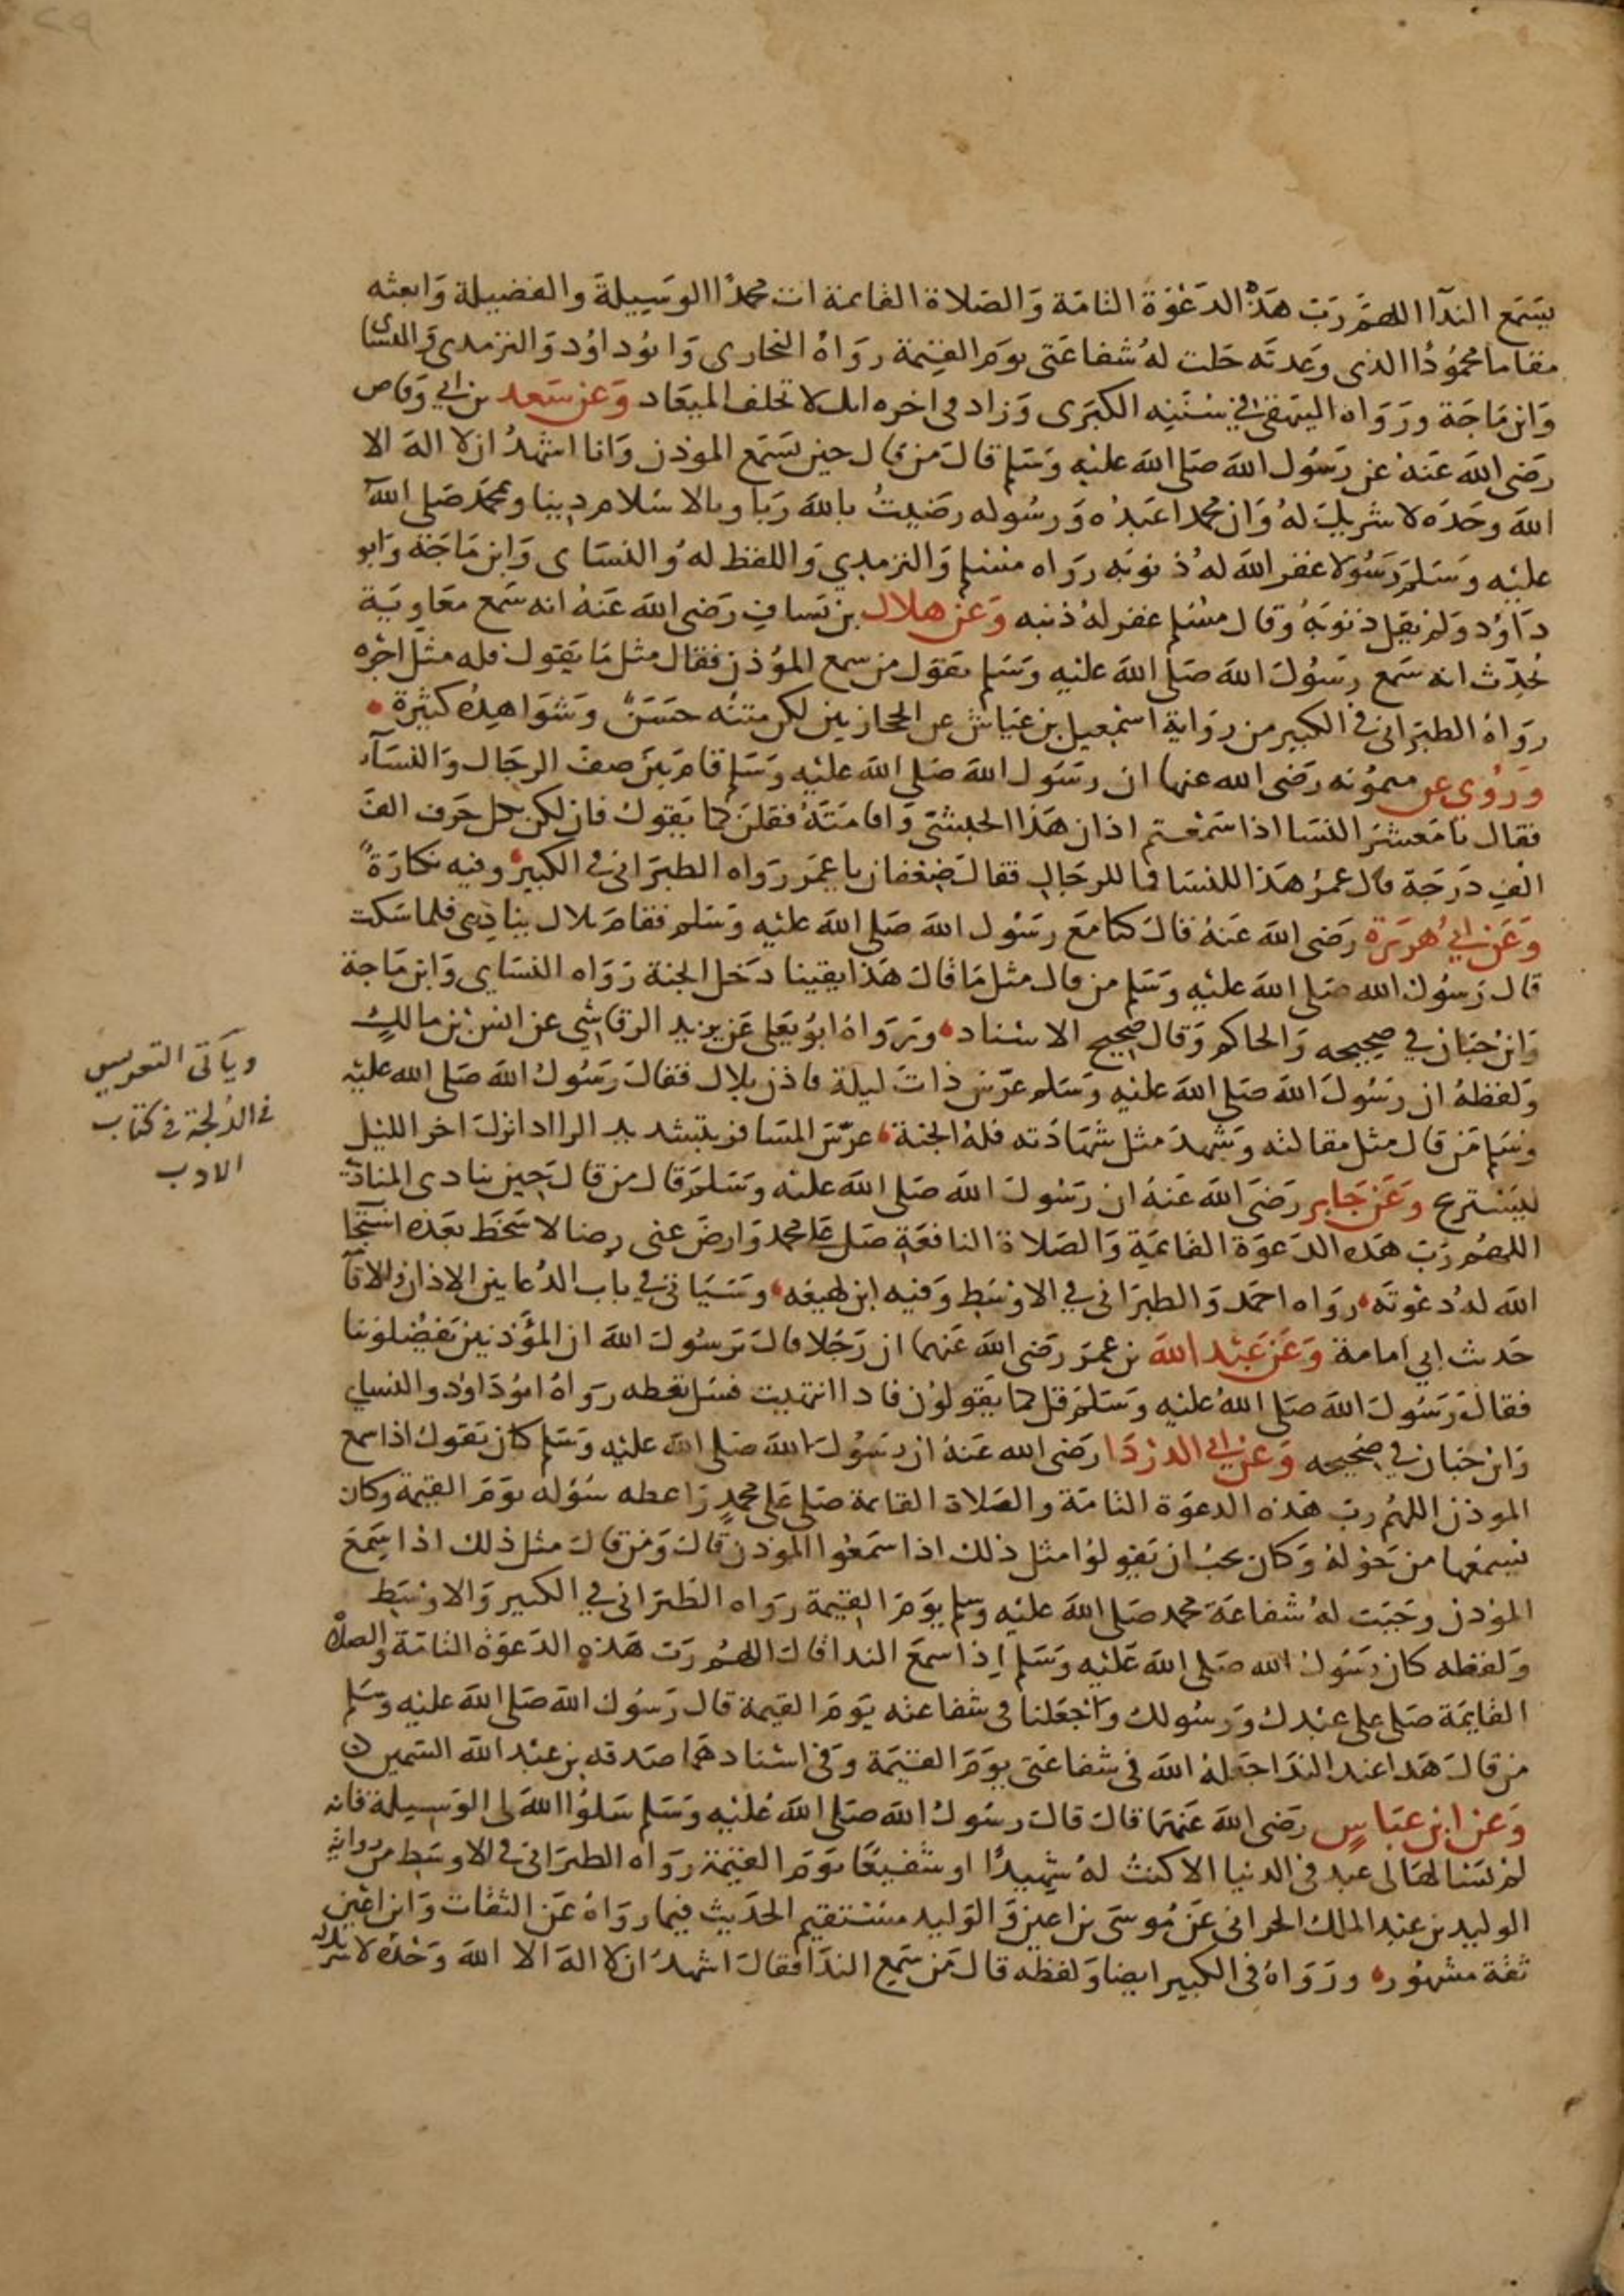 يسمع الندآ اللهم رب هذه الدعوة التامة والصلاة القائمة ات محمدا الوسيلة والفضيلة وابعثه
مقاما محمودا الذى وعدته حلت له شفاعتى يوم القيمة رواه البخارى وابو داود والترمذى والنساى
وابن ماجة ورواه البيهقى فى سننه الكبرى وزاد فى اخره انك لا تخلف الميعاد وعن سعد بن ابي وقاص
رضى الله عنه عن رسول الله صلى الله عليه وسلم قال من قال حين يسمع الموذن وانا اشهد ان لا اله الا
الله وحده لا شريك له وان محمدا عبده ورسوله رضيت بالله ربا وبالاسلام دينا وبمحمد صلى الله
عليه وسلم رسولا غفر الله له ذنوبه رواه مسلم والترمذي واللفظ له والنساى وابن ماجة وابو
داود ولم يقل ذنوبه وقال مسلم غفر له ذنبه وعن هلال بن يساف رضى الله عنه انه سمع معاوية
يحدث انه سمع رسول الله صلى الله عليه وسلم يقول من سمع المؤذن فقال مثل ما يقول فله مثل اجره
رواه الطبرانى فى الكبير من رواية اسمعيل بن عياش عن الحجازيين لكن متنه حسن وشواهده كثيرة
وروي عن ميمونه رضى الله عنها ان رسول الله صلى الله عليه وسلم قام بين صف الرجال والنسآء
فقال يا معشر النسا اذا سمعتم اذان هذا الحبشى واقامته فقلن كما يقول فان لكن بكل حرف الف
الف درجة قال عمر هذا للنسا فما للرجال فقال ضعفان يا عمر رواه الطبرانى فى الكبير وفيه نكارة
وعن ابي هريرة رضى الله عنه قال كنا مع رسول الله صلى الله عليه وسلم فقام بلال ينادى فلما سكت
قال رسول الله صلى الله عليه وسلم من قال مثل ما قال هذا يقينا دخل الجنة رواه النساي وابن ماجة
وابن حبان في صحيحه والحاكم وقال صحيح الاسناد ورواه ابو يعلى عن يزيد الرقاشي عن انس بن مالك
ولفظه ان رسول الله صلى الله عليه وسلم عرس ذات ليلة فاذن بلال فقال رسول الله صلى الله عليه
وسلم من قال مثل مقالته وشهد مثل شهادته فله الجنة عرس المسافر بتشديد الرا اذا نزل اخر الليل
ليستريح وعن جابر رضى الله عنه ان رسول الله صلى الله عليه وسلم قال من قال حين ينادى المنادى
اللهم رب هذه الدعوة القائمة والصلاة النافعة صل على محمد وارض عنى رضا لا سخط بعده استجا
الله له دعوته رواه احمد والطبرانى في الاوسط وفيه ابن لهيعه وسياتى في باب الدعا بين الاذان والاقا
حديث ابي امامة وعن عبد الله بن عمر رضى الله عنهما ان رجلا قال يرسول الله ان المؤذنين يفضلوننا
فقال رسول الله صلى الله عليه وسلم قل كما يقولون فاذا انتهيت فسل تعطه رواه ابو داود والنساي
وابن حبان في صحيحه وعن ابي الدردا رضى الله عنه ان رسول الله صلى الله عليه وسلم كان يقول اذا سمع
الموذن اللهم رب هذه الدعوة التامة والصلاة القائمة صلى على محمد واعطه سؤله يوم القيمة وكان
يسمعها من حوله وكان يحب ان يقولوا مثل ذلك اذا سمعوا الموذن قال ومن قال مثل ذلك اذا سمع
الموذن وجبت له شفاعة محمد صلى الله عليه وسلم يوم القيمة رواه الطبرانى في الكبير والاوسط
ولفظه كان رسول الله صلى الله عليه وسلم اذا سمع الندا قال اللهم رب هذه الدعوة التامة والصلاة
القايمة صلى على عبدك ورسولك واجعلنا فى شفاعته يوم القيمة قال رسول الله صلى الله عليه وسلم
من قال هذا عند الندا جعله الله فى شفاعتى يوم القيمة وفى اسنادهما صدقه بن عبد الله السمين
وعن ابن عباس رضى الله عنهما قال قال رسول الله صلى الله عليه وسلم سلوا الله لى الوسيلة فانه
لم يسئلها لى عبد فى الدنيا الا كنت له شهيدا او شفيعا يوم القيمة رواه الطبرانى فى الاوسط من رواية
الوليد بن عبد الملك الحرانى عن موسى بن اعين والوليد مستقيم الحديث فيما رواه عن الثقات وابن اعين
ثقة مشهور ورواه فى الكبير ايضا ولفظه قال من سمع الندا فقال اشهد ان لا اله الا الله وحده لا شريك
وياتى التعريس
فى الدلجة فى كتاب
الادب